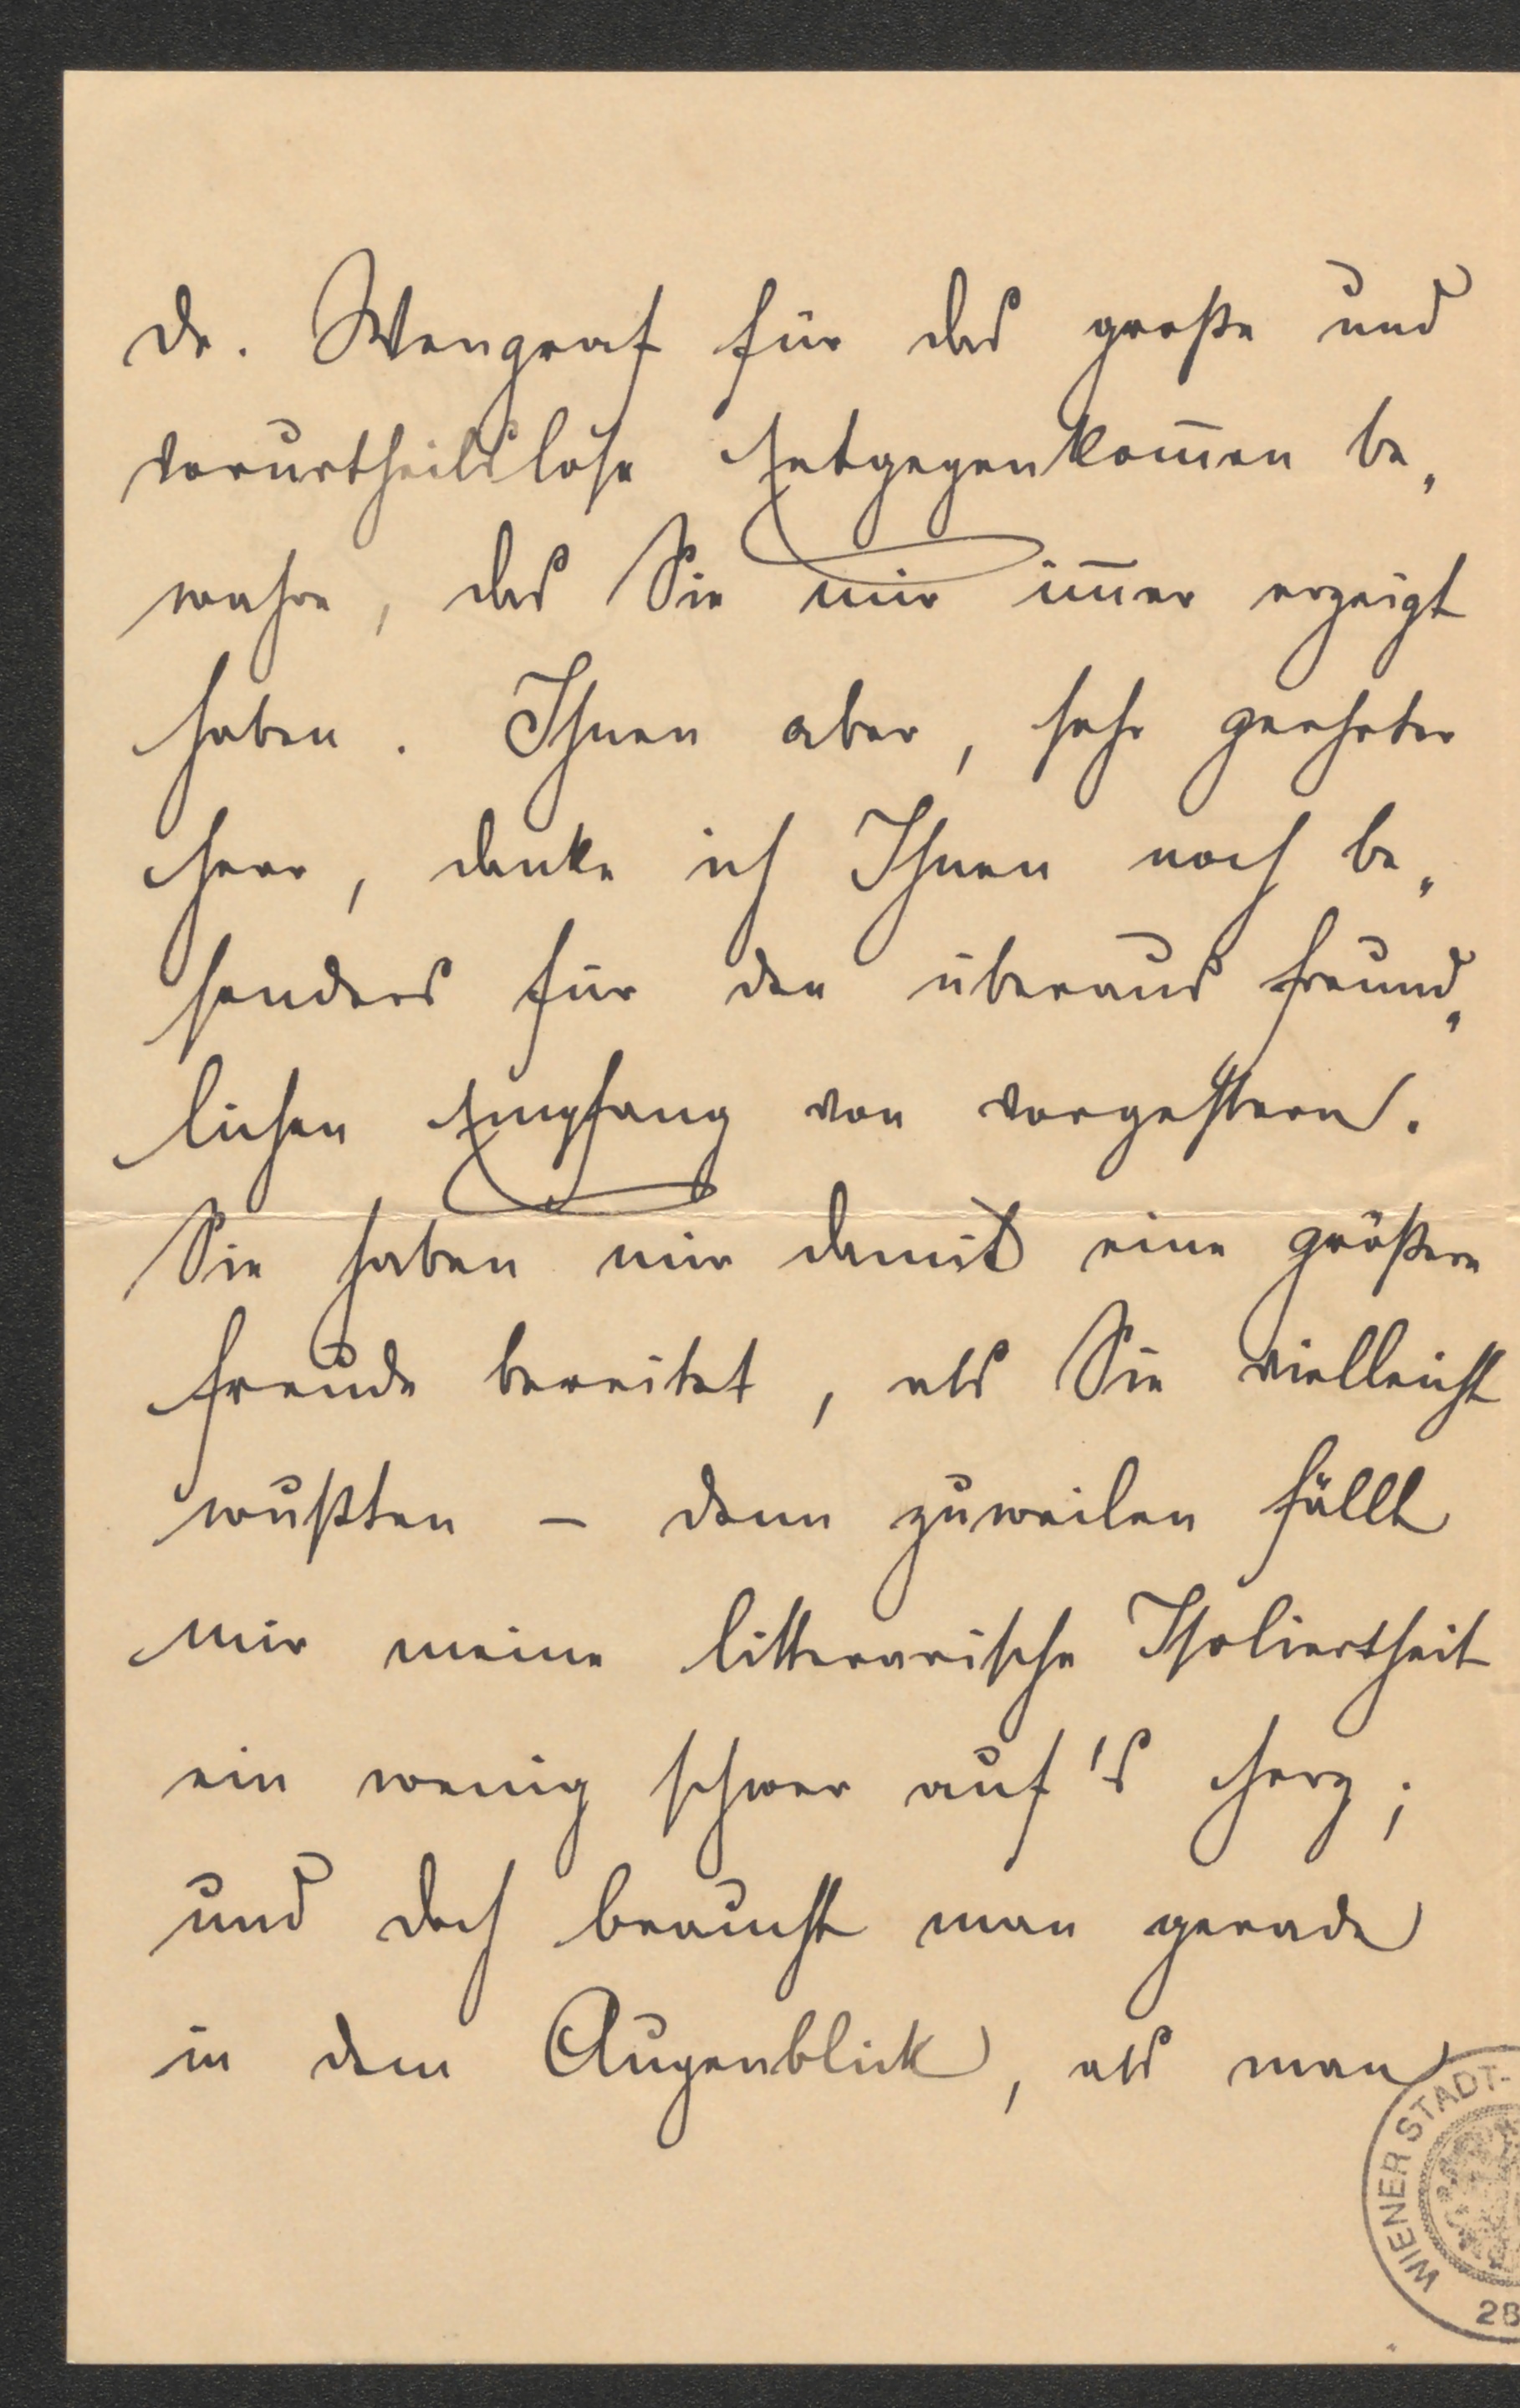 Dr. Wengraf für das große und
vorurtheilslose Entgegenkom̅en be„
wahre, das Sie mir im̅er erzeigt
haben. Ihnen aber, sehr geehrter
Herr, danke ich Ihnen noch be„
sonders für den überaus freund„
lichen Empfang von vorgestern.
Sie haben mir damit eine größere
Freude bereitet, als Sie vielleicht
wußten – denn zuweilen fällt
mir meine litterarische Isoliertheit
ein wenig schwer auf's Herz;
und doch braucht man gerade
in dem Augenblick, als man
WIENER STADT-
28